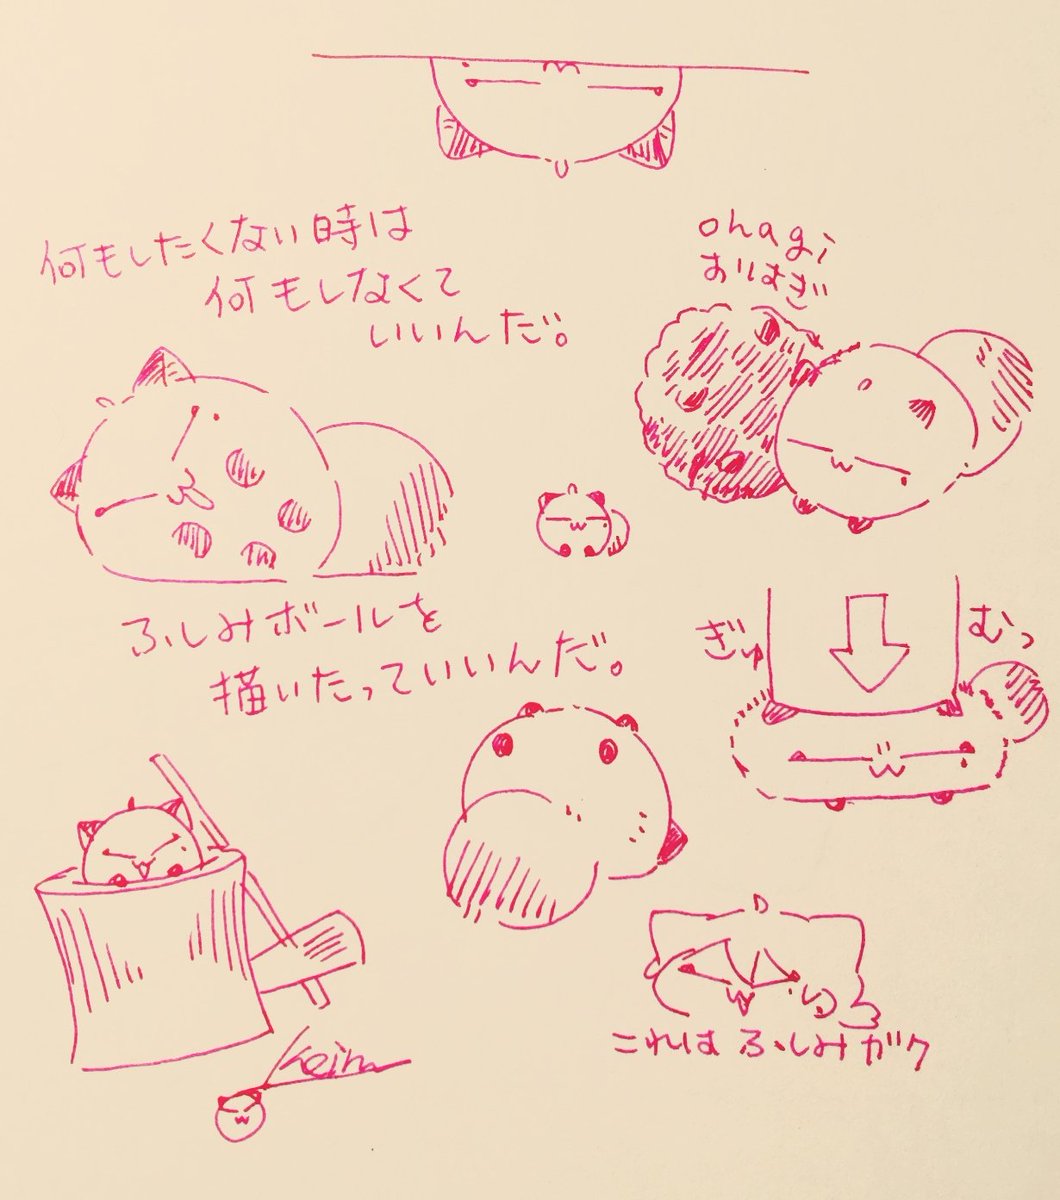 何もしたくない時は
何もしなくて
いいんだ。
ohagi
おはぎ
ふしみボールを
描いたっていいんだ。
ぎゅ
むっ
これは ふしみガク
Keina